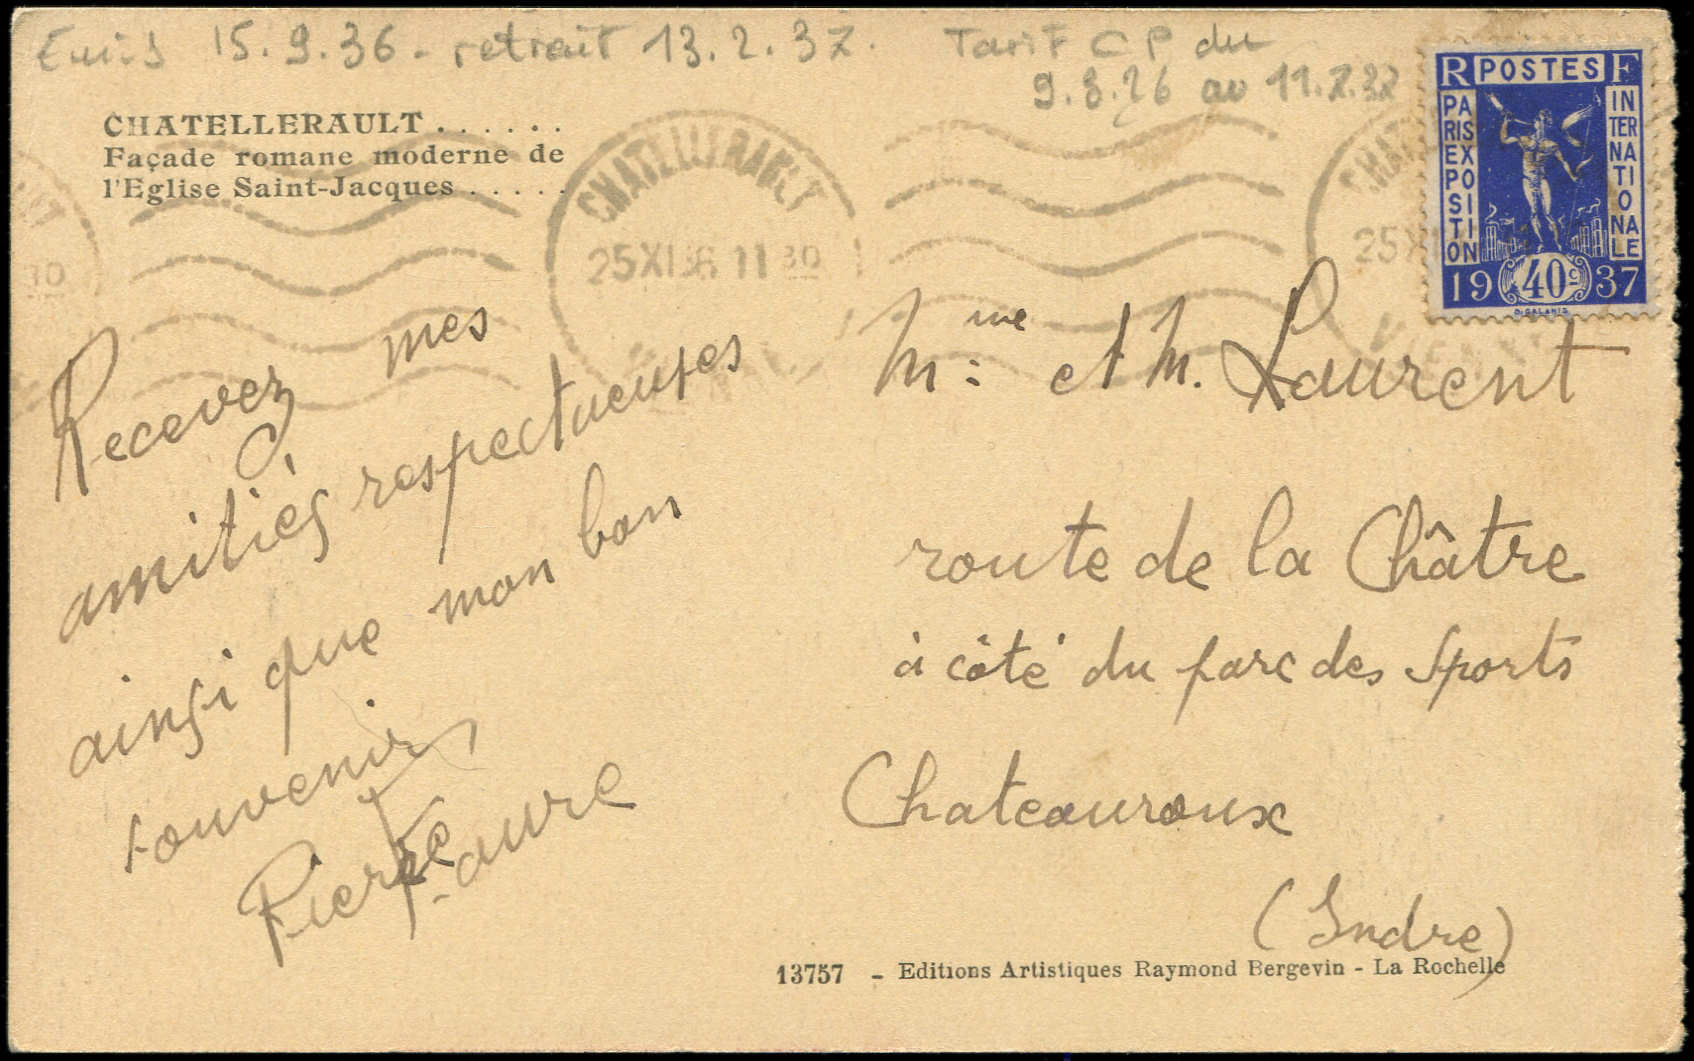 Emis 15.9.36 - retrait 13.2.37. Tarif CP du
9.8.26 au 11.7.37
CHATELLERAULT . . . . . .
Façade romane moderne de
l'Eglise Saint-Jacques . . . . .
CHATELLERAULT
25 XI 36 11 30
CHAT
25 X
VIENNE
30
R POSTES F
PARIS EXPOSITION
INTERNATIONALE
1937
40c
Recevez mes
amitiés respectueuses
ainsi que mon bon
souvenir
Pierre Faure
Mme et M. Laurent
route de la Châtre
à côté du parc des Sports
Chateauroux
(Indre)
13757 - Editions Artistiques Raymond Bergevin - La Rochelle